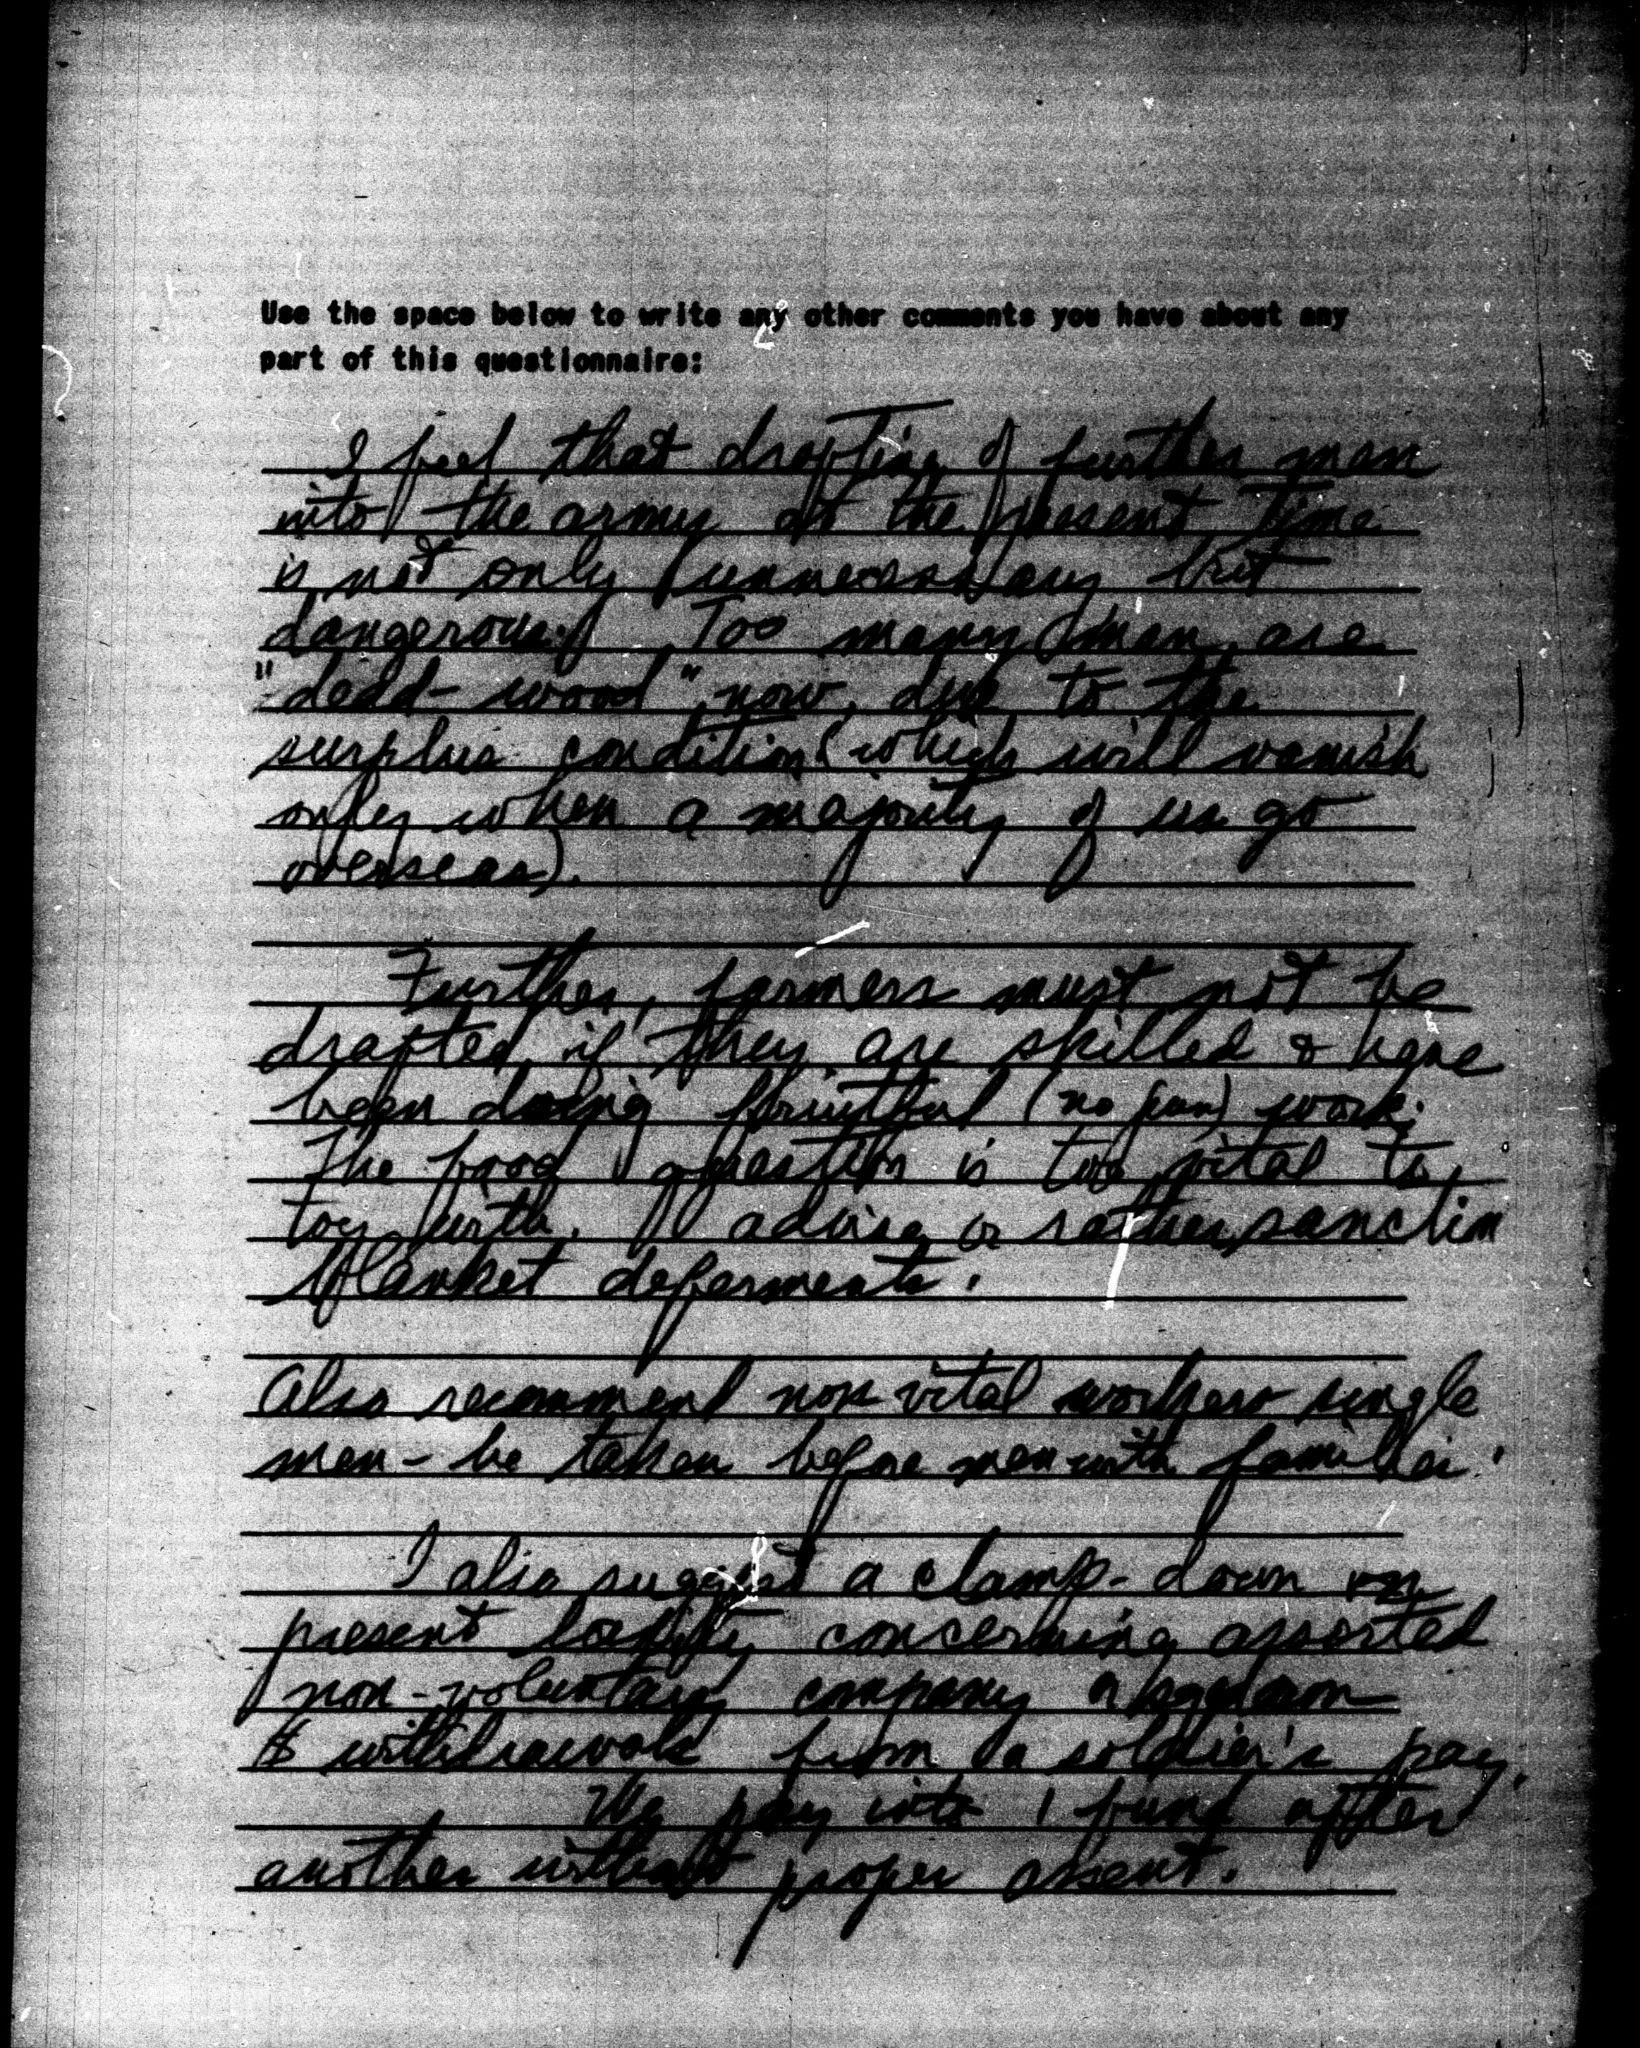 Use the space below to write any other comments you have about any
part of this questionnaire:
I feel that drafting of further men
into the army at the present time
is not only unnecessary but
dangerous. Too many men are
"dead-wood" now, due to the
surplus condition (which will vanish
only when a majority of us go
overseas).
Further, farmers must not be
drafted if they are skilled & have
been doing fruitful (no pun) work.
The food question is too vital to
toy with. I advise, or rather, sanction
blanket deferments.
Also recommend non vital workers single
men - be taken before men with families.
I also suggest a clamp-down on
present concerning assorted
non-voluntary company or squadron
$ withdrawals from a soldier's pay.
We pay into 1 fund after
another without proper assent.